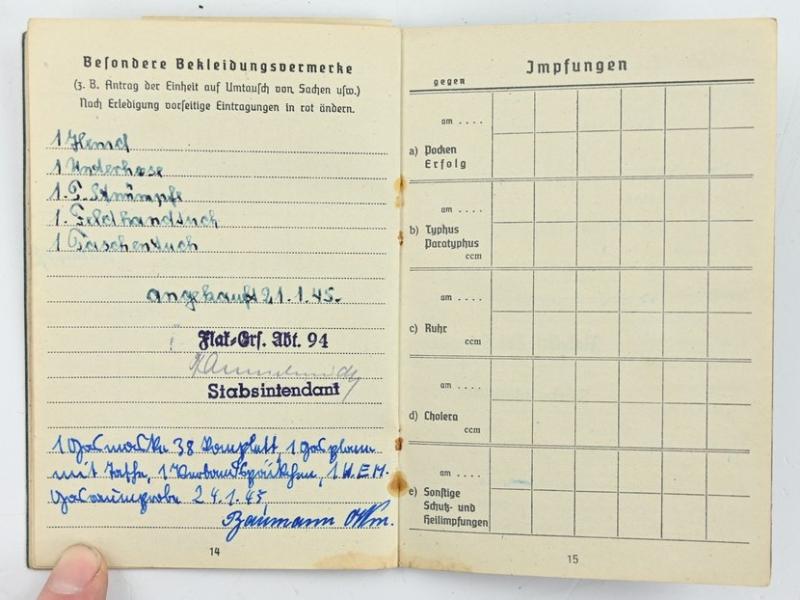 Besondere Bekleidungsvermerke
(z. B. Antrag der Einheit auf Umtausch von Sachen usw.)
Nach Erledigung vorseitige Eintragungen in rot ändern.
1 Hemd
1 Underhose
1. P. Strümpfe
1. Feldhandtuch
1 Taschentuch
angekauft 21.1.45.
Flak-Ers. Abt. 94
Stabsintendant
1 Gasmaske 38 komplett, 1 Gasplane
mit Tasche, 1 Verbandspäckchen, 1 H.E.M.
24.1.45
Baumann
14
Impfungen
gegen
am ....
a) Pocken
Erfolg
am ....
b) Typhus
Paratyphus
ccm
am ....
c) Ruhr
ccm
am ....
d) Cholera
ccm
am ....
e) Sonstige
Schutz- und
Heilimpfungen
15